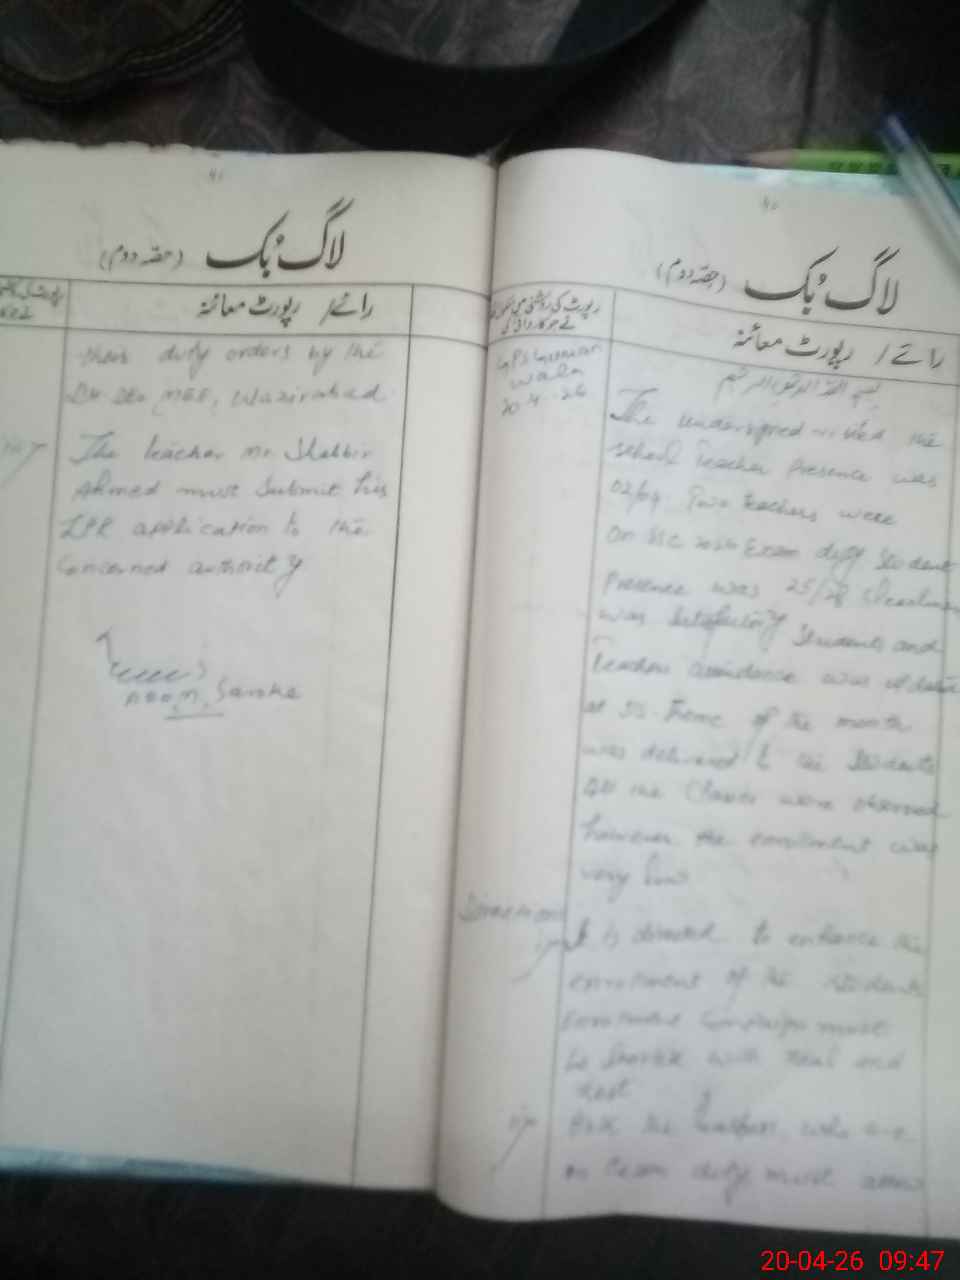 لاگ بُک (حصہ دوم)
رائے / رپورٹ معائنہ
رپورٹ کی روشنی میں
نے جو کارروائی کی
بسم اللہ الرحمن الرحیم
GPS
Wala
20-4-26
The undersigned visited the
School Teacher Presence was
02/04 Two teachers were
on SSC 2026 Exam duty Student
Presence was 25/28
was satisfactory Students and
Teachers attendance was
at SIS. Theme of the month
was delivered to the Students
All the Classes were observed
however the enrollment was
very low
Direction
i) It is directed to enhance the
enrollment of the students
Campaign must
be with Zeal and
Zest
ii) Both the teachers, who are
on Exam duty must
لاگ بُک (حصہ دوم)
رائے / رپورٹ معائنہ
their duty orders by the
Dy DEO MEE, Wazirabad
iii) The teacher Mr. Shabbir
Ahmed must Submit his
LPR application to the
Concerned authority
AEO, M, Saroke
20-04-26 09:47